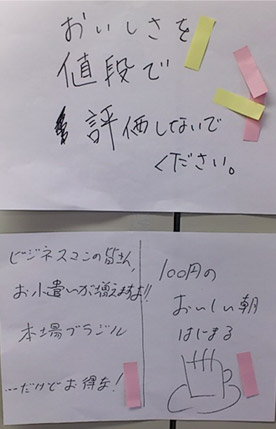 おいしさを
値段で
評価しないで
ください。
ビジネスマンの皆さん,
お小遣いが増えますよ!!
本場ブラジル
…だけでお得な!
100円の
おいしい朝
はじまる